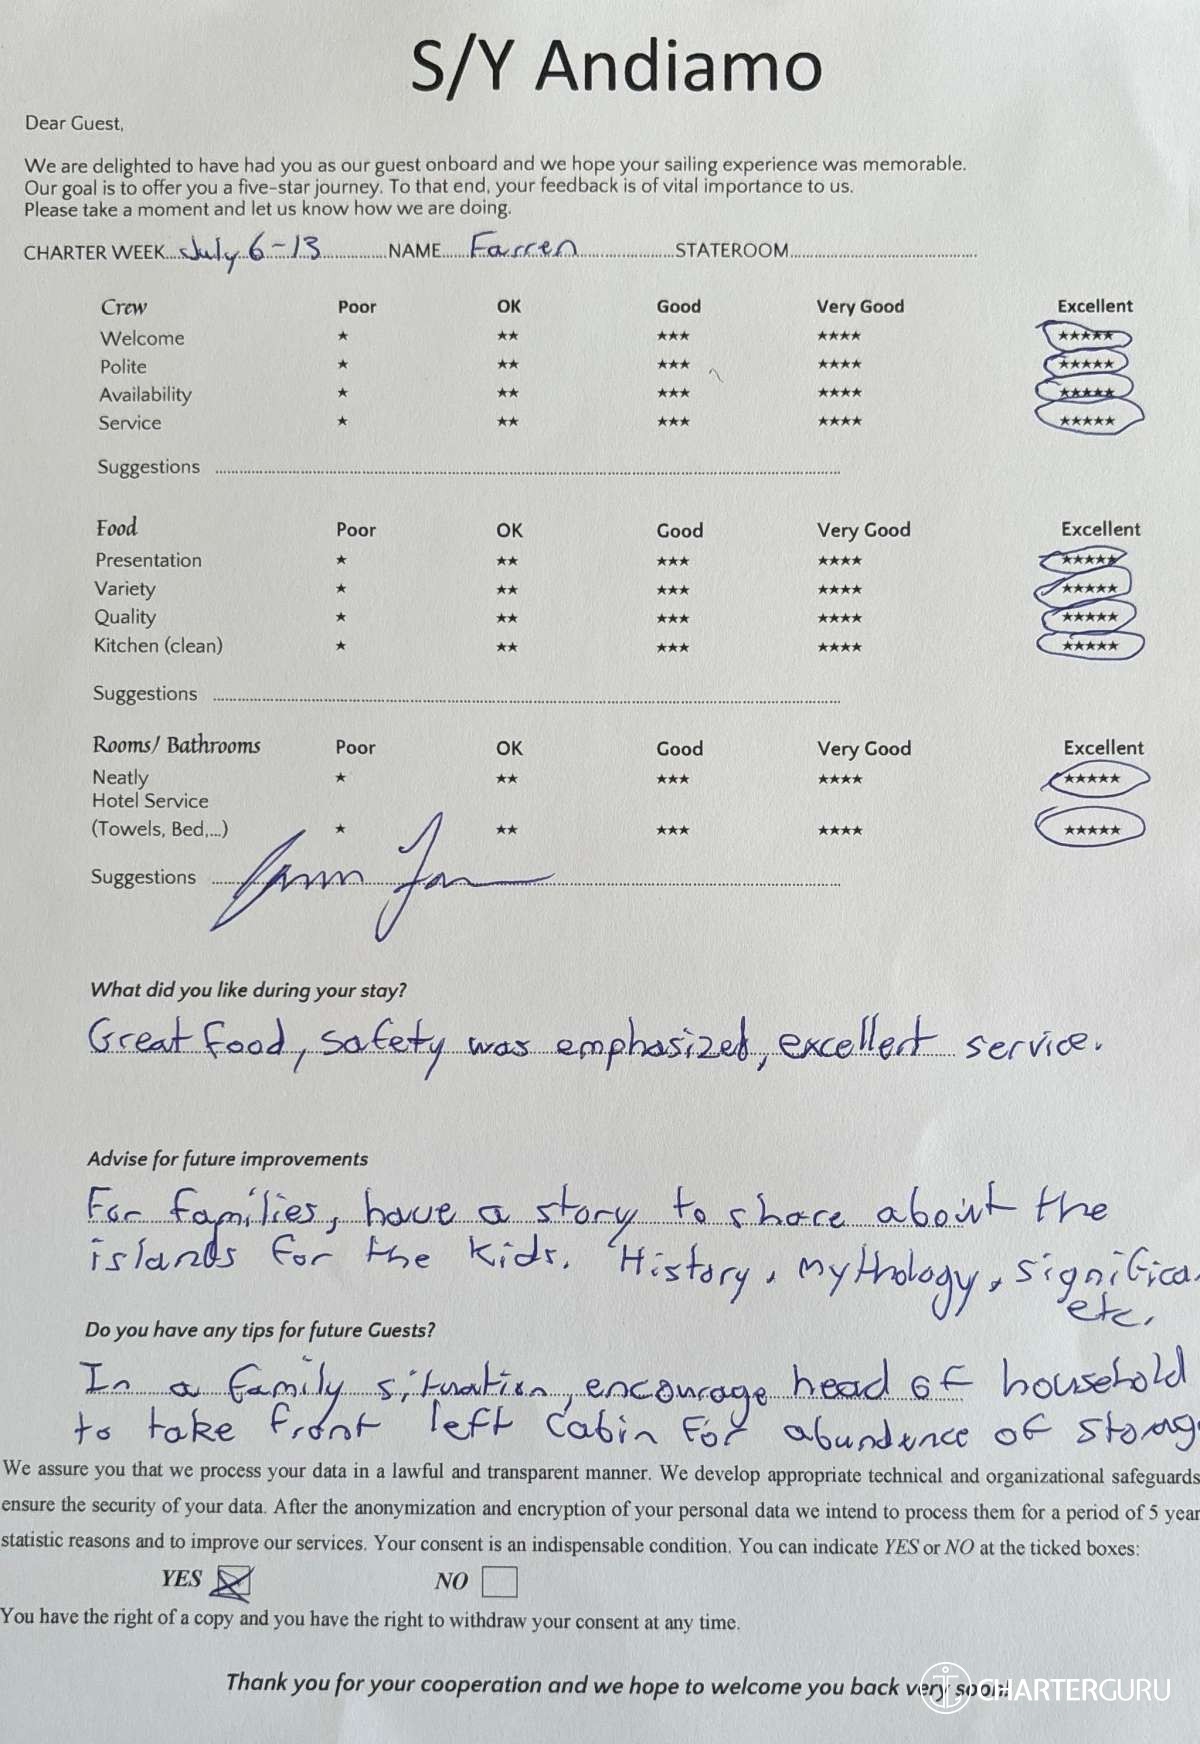 S/Y Andiamo
Dear Guest,
We are delighted to have had you as our guest onboard and we hope your sailing experience was memorable.
Our goal is to offer you a five-star journey. To that end, your feedback is of vital importance to us.
Please take a moment and let us know how we are doing.
CHARTER WEEK July 6-13 NAME Farren STATEROOM
Crew Poor OK Good Very Good Excellent
Welcome ★ ★★ ★★★ ★★★★ ★★★★★
Polite ★ ★★ ★★★ ★★★★ ★★★★★
Availability ★ ★★ ★★★ ★★★★ ★★★★★
Service ★ ★★ ★★★ ★★★★ ★★★★★
Suggestions
Food Poor OK Good Very Good Excellent
Presentation ★ ★★ ★★★ ★★★★ ★★★★★
Variety ★ ★★ ★★★ ★★★★ ★★★★★
Quality ★ ★★ ★★★ ★★★★ ★★★★★
Kitchen (clean) ★ ★★ ★★★ ★★★★ ★★★★★
Suggestions
Rooms/ Bathrooms Poor OK Good Very Good Excellent
Neatly ★ ★★ ★★★ ★★★★ ★★★★★
Hotel Service
(Towels, Bed,...) ★ ★★ ★★★ ★★★★ ★★★★★
Suggestions
What did you like during your stay?
Great food, safety was emphasized, excellent service.
Advise for future improvements
For families, have a story to share about the
islands for the kids. History, mythology, significa
etc.
Do you have any tips for future Guests?
In a family situation, encourage head of household
to take front left cabin for abundance of storag
We assure you that we process your data in a lawful and transparent manner. We develop appropriate technical and organizational safeguards
ensure the security of your data. After the anonymization and encryption of your personal data we intend to process them for a period of 5 year
statistic reasons and to improve our services. Your consent is an indispensable condition. You can indicate YES or NO at the ticked boxes:
YES NO
You have the right of a copy and you have the right to withdraw your consent at any time.
Thank you for your cooperation and we hope to welcome you back very soon!
CHARTERGURU